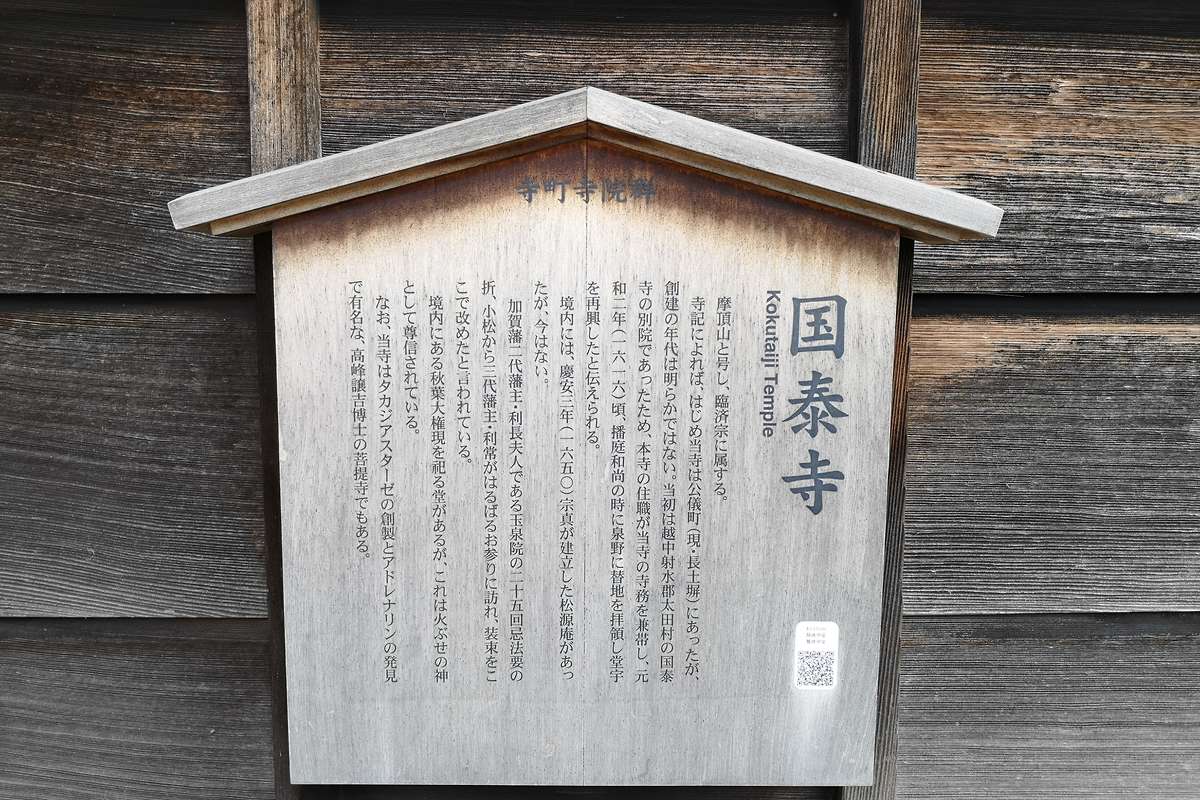 寺町寺院群
国泰寺
Kokutaiji Temple
摩頂山と号し、臨済宗に属する。
寺記によれば、はじめ当寺は公儀町(現・長土塀)にあったが、
創建の年代は明らかではない。当初は越中射水郡太田村の国泰
寺の別院であったため、本寺の住職が当寺の寺務を兼帯し、元
和二年(一六一六)頃、播庭和尚の時に泉野に替地を拝領し堂宇
を再興したと伝えられる。
境内には、慶安三年(一六五〇)宗真が建立した松源庵があっ
たが、今はない。
加賀藩二代藩主・利長夫人である玉泉院の二十五回忌法要の
折、小松から三代藩主・利常がはるばるお参りに訪れ、装束をこ
こで改めたと言われている。
境内にある秋葉大権現を祀る堂があるが、これは火ぶせの神
として尊信されている。
なお、当寺はタカジアスターゼの創製とアドレナリンの発見
で有名な、高峰譲吉博士の菩提寺でもある。